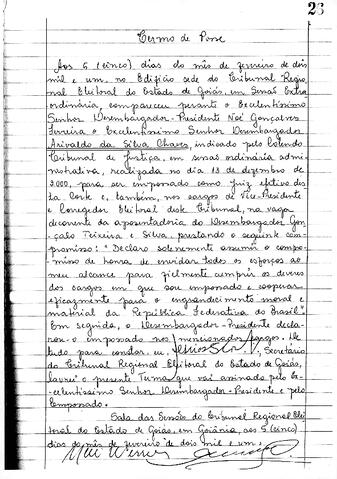 23
Termo de Posse
Aos 5 (cinco) dias do mês de fevereiro de dois
mil e um, no Edifício sede do Tribunal Regio
nal Eleitoral do Estado de Goiás, em Sessão Extra
ordinária, compareceu perante o Excelentíssimo
Senhor Desembargador-Presidente Noé Gonçalves
Ferreira o Excelentíssimo Senhor Desembargador
Arivaldo da Silva Chaves, indicado pelo Colendo
Tribunal de Justiça, em sessão ordinária admi-
nistrativa, realizada no dia 13 de dezembro de
2000, para ser empossado como Juiz efetivo des
ta Corte e, também, nos cargos de Vice-Presidente
e Corregedor Eleitoral deste Tribunal, na vaga
decorrente da aposentadoria do Desembargador Gon
çalo Teixeira e Silva, prestando o seguinte com-
promisso: "Declaro solenemente assumir o compro-
misso de honra de envidar todos os esforços ao
meu alcance para fielmente cumprir os deveres
dos cargos em que sou empossado e cooperar
eficazmente para o engrandecimento moral e
material da República Federativa do Brasil".
Em seguida, o Desembargador-Presidente decla-
rou-o empossado nos mencionados cargos. De
tudo para constar, eu, Secretário
do Tribunal Regional Eleitoral do Estado de Goiás,
lavrei o presente Termo que vai assinado pelo Ex-
celentíssimo Senhor Desembargador-Presidente e pelo
Empossado.
Sala das Sessões do Tribunal Regional Elei-
toral do Estado de Goiás, em Goiânia, aos 5 (cinco)
dias do mês de fevereiro de dois mil e um.